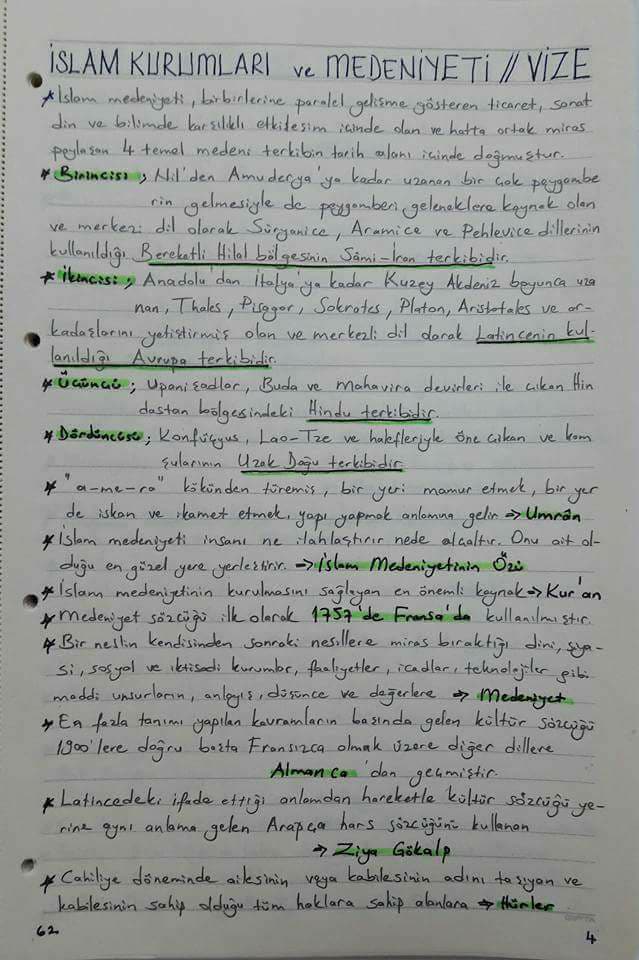 İSLAM KURUMLARI ve MEDENİYETİ // VİZE
* İslam medeniyeti, birbirlerine paralel gelişme gösteren ticaret, sanat
din ve bilimde karşılıklı etkileşim içinde olan ve hatta ortak miras
paylaşan 4 temel medeni terkibin tarih alanı içinde doğmuştur.
* Birincisi; Nil'den Amuderya'ya kadar uzanan bir çok peygambe
rin gelmesiyle de peygamberi geleneklere kaynak olan
ve merkezi dil olarak Süryanice, Aramice ve Pehlevice dillerinin
kullanıldığı Bereketli Hilal bölgesinin Sâmi-İran terkibidir.
* İkincisi; Anadolu'dan İtalya'ya kadar Kuzey Akdeniz boyunca uza
nan, Thales, Pisagor, Sokrates, Platon, Aristotales ve ar-
kadaşlarını yetiştirmiş olan ve merkezli dil olarak Latincenin kul-
lanıldığı Avrupa terkibidir.
* Üçüncü; Upanişadlar, Buda ve Mahavira devirleri ile çıkan Hin
dastan bölgesindeki Hindu terkibidir.
* Dördüncüsü; Konfüçyus, Lao-Tze ve halefleriyle öne çıkan ve kom
şularının Uzak Doğu terkibidir
* "a-me-ra" kökünden türemiş, bir yeri mamur etmek, bir yer
de iskan ve ikamet etmek, yapı yapmak anlamına gelir ⇒ Umrân
* İslam medeniyeti insanı ne ilahlaştırır nede alçaltır. Onu ait ol-
duğu en güzel yere yerleştirir. → İslam Medeniyetinin Özü
* İslam medeniyetinin kurulmasını sağlayan en önemli kaynak → Kur'an
* Medeniyet sözcüğü ilk olarak 1757'de Fransa'da kullanılmıştır.
* Bir neslin kendisinden sonraki nesillere miras bıraktığı dini, siya-
si, sosyal ve iktisadi kurumlar, faaliyetler, icadlar, teknolojiler gibi
maddi unsurların, anlayış, düşünce ve değerlere ⇒ Medeniyet
* En fazla tanımı yapılan kavramların başında gelen kültür sözcüğü
1900'lere doğru başta Fransızca olmak üzere diğer dillere
Almanca'dan geçmiştir.
* Latincedeki ifade ettiği anlamdan hareketle kültür sözcüğü ye-
rine aynı anlama gelen Arapça hars sözcüğünü kullanan
⇒ Ziya Gökalp
* Cahiliye döneminde ailesinin veya kabilesinin adını taşıyan ve
kabilesinin sahip olduğu tüm haklara sahip olanlara ⇒ Hürler
62
4